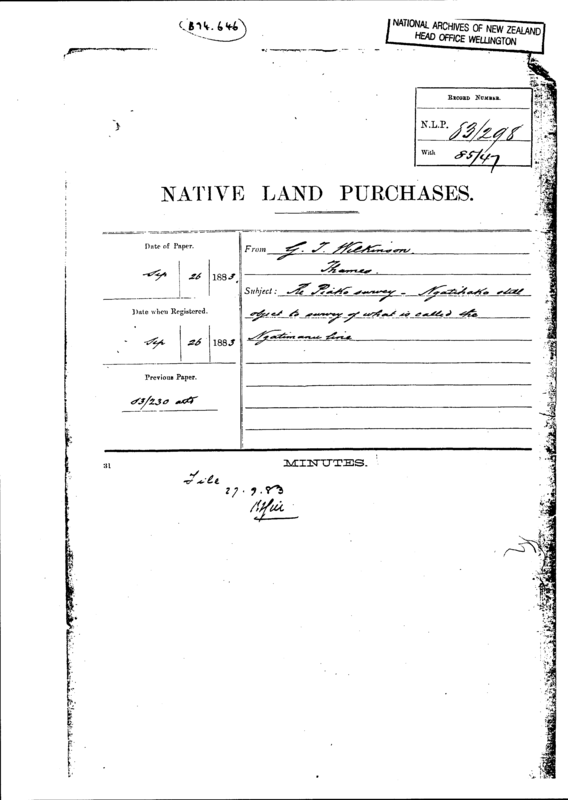 (B74.646)
NATIONAL ARCHIVES OF NEW ZEALAND
HEAD OFFICE WELLINGTON
RECORD NUMBER.
N.L.P. 83/298
With 85/47
NATIVE LAND PURCHASES.
Date of Paper.
Sep 26 1883.
Date when Registered.
Sep 26 1883
Previous Paper.
83/230
From G. T. Wilkinson.
Thames.
Subject: The Piako survey - Ngatihako still
object to survey of what is called the
Ngatimaru line
31
MINUTES.
File
27.9.83